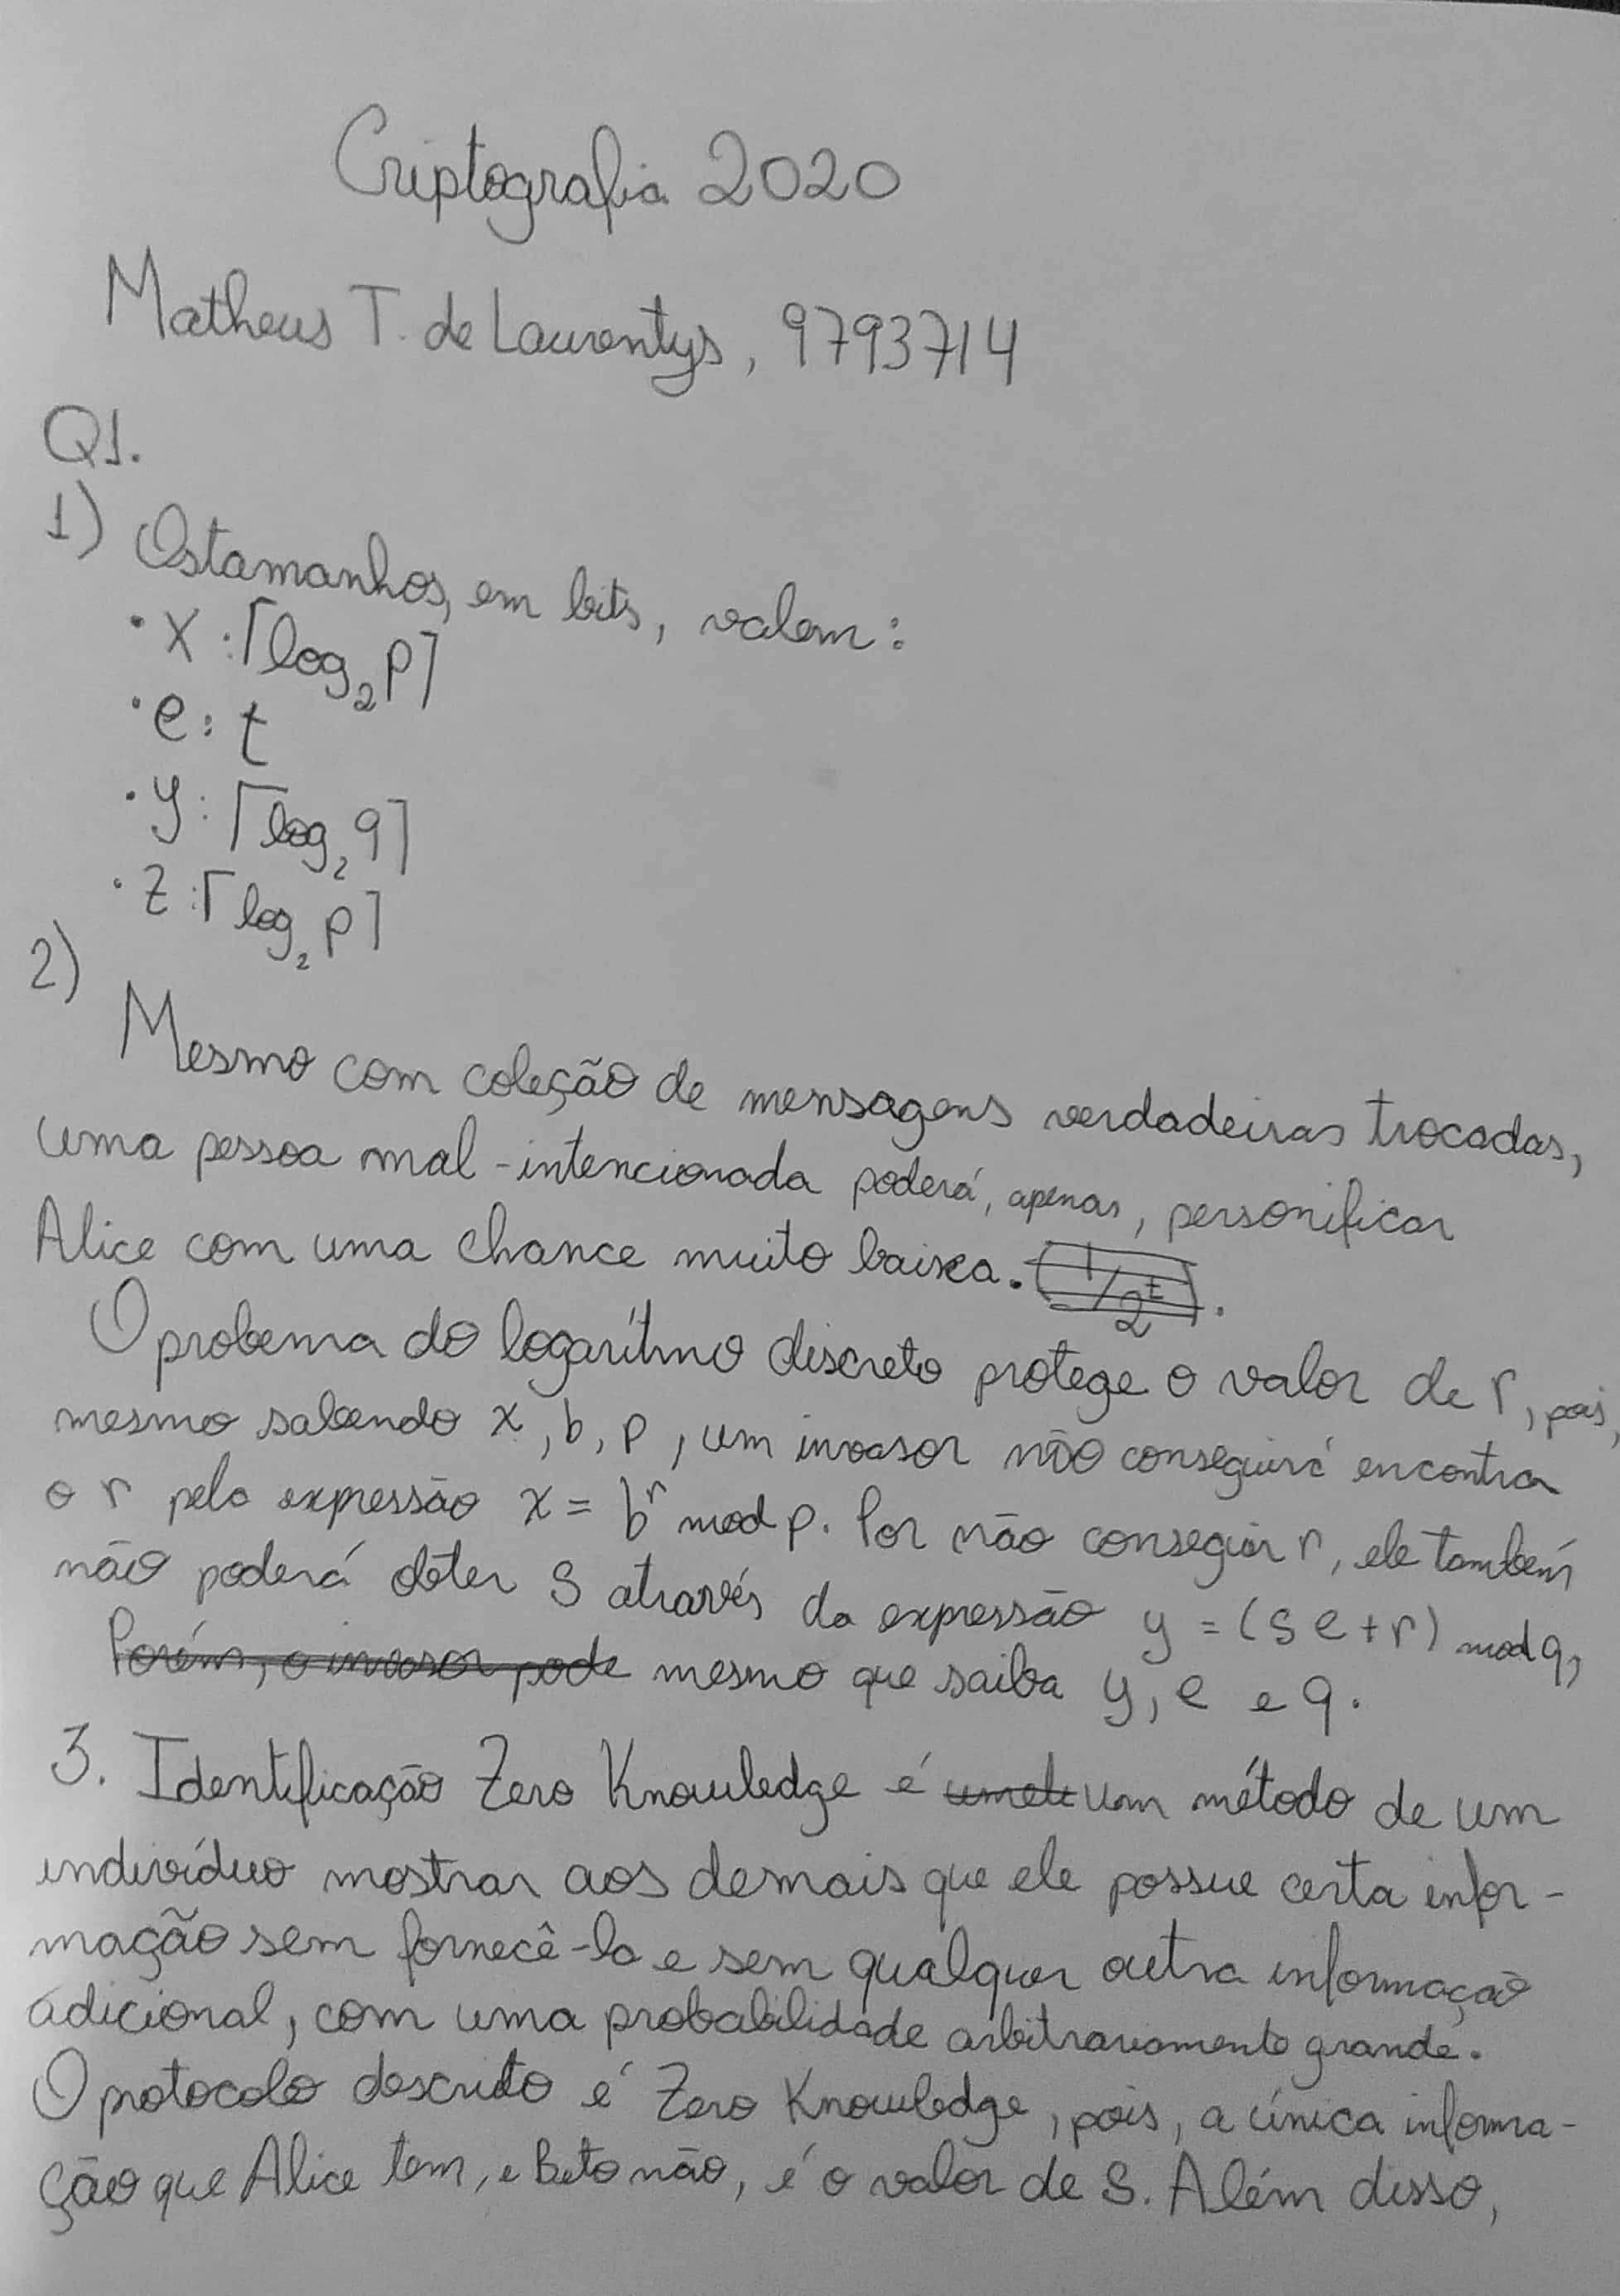 Criptografia 2020
Matheus T. de Laurentys, 9793714
Q1.
1) Os tamanhos, em bits, valem:
• X: ⌈log₂ p⌉
• e: t
• y: ⌈log₂ q⌉
• z: ⌈log₂ p⌉
2)
Mesmo com coleção de mensagens verdadeiras trocadas,
uma pessoa mal-intencionada poderá, apenas, personificar
Alice com uma chance muito baixa. (1/2^t).
O probema do logarítmo discreto protege o valor de r, pois,
mesmo sabendo x, b, p, um invasor não conseguirá encontra
o r pela expressão x = b^r mod p. Por não conseguir r, ele também
não poderá obter S através da expressão y = (se+r) mod q,
Porém, o invasor pode mesmo que saiba y, e e q.
3. Identificação Zero Knowledge é um método de um
indivíduo mostrar aos demais que ele possue certa infor-
mação sem fornecê-la e sem qualquer outra informação
adicional, com uma probabilidade arbitrariamente grande.
O protocolo descrito é Zero Knowledge, pois, a única informa-
ção que Alice tem, e Beto não, é o valor de S. Além disso,